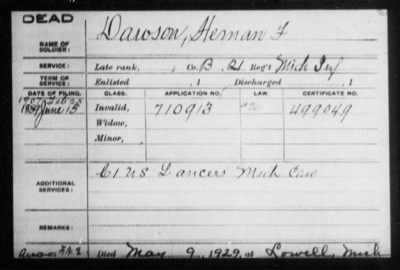 DEAD
NAME OF SOLDIER: Dawson, Heman F
SERVICE: Late rank, , Co. B, 21 Reg't Mich Inf
TERM OF SERVICE: Enlisted , 1 Discharged , 1
DATE OF FILING. CLASS. APPLICATION NO. LAW. CERTIFICATE NO.
1907 Feb
188 June 15 Invalid, 710913 499049
Widow,
Minor,
ADDITIONAL SERVICES: C 1 US Lancers Mich Cav
REMARKS:
Died May 9, 1929, at Lowell, Mich